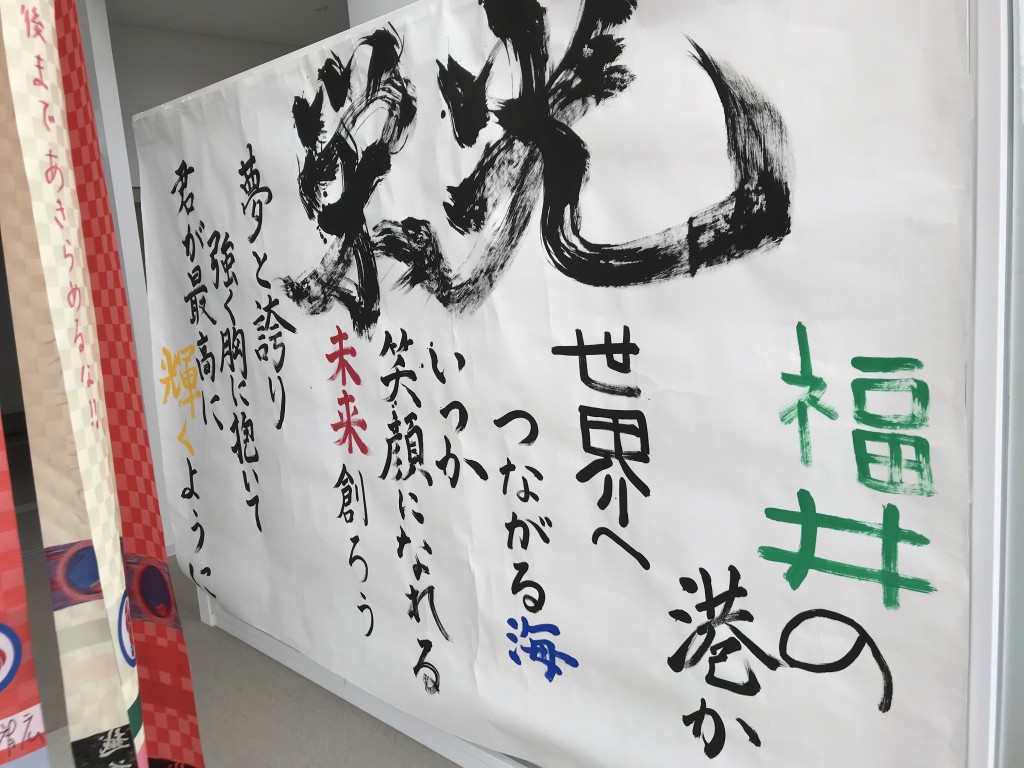 福井の
港か
世界へ
つながる海
いつか
笑顔になれる
未来創ろう
夢と誇り
強く胸に抱いて
君が最高に
輝くように
後まであきらめるな!!